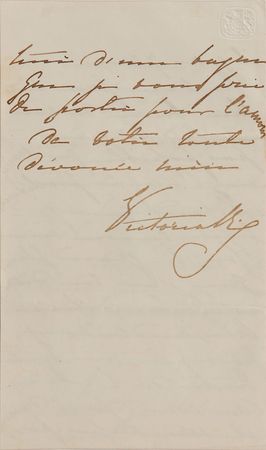 d'un bague
que je vous prie
de porter pour l'amour
de votre toute
dévouée
Victoria R